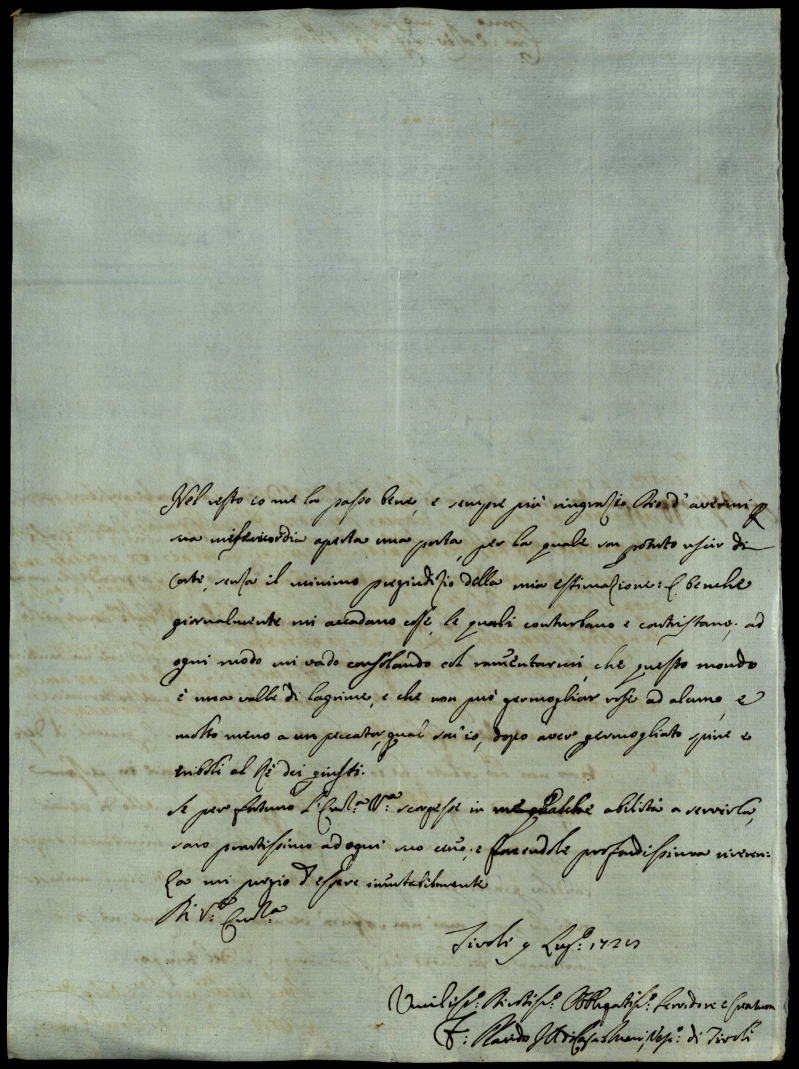 Nel resto io me la passo bene, e sempre più ringrazio Dio d'avermi p
sua misericordia aperta una porta, per la quale son potuto uscir di
Corte, senza il minimo pregiudizio della mia estimazione: E benche
giornalmente mi accadano cose, le quali conturbano e contristano; ad
ogni modo mi vado consolando col ram̃entarmi, che questo mondo
è una valle di lagrime, e che non può germogliar rose ad alcuno, e
molto meno a un peccator, qual son'io, dopo aver germogliato spine e
triboli al Rè dei giusti.
Se per fortuna l'Ecc.ᵃ V.ᵃ scorgesse in me qualche abilità a servirla,
sarò prontissimo ad ogni suo cen̄o; e facendole profondissima riveren:
za mi pregio d'essere inmutabilmente
Di V.ᵃ Ecc.ᵃ
Tivoli 9 Lug.º
Umiliss.º Devotiss.º Obbligatiss.º Servidore e
F: Placido Vesc.º di Tivoli